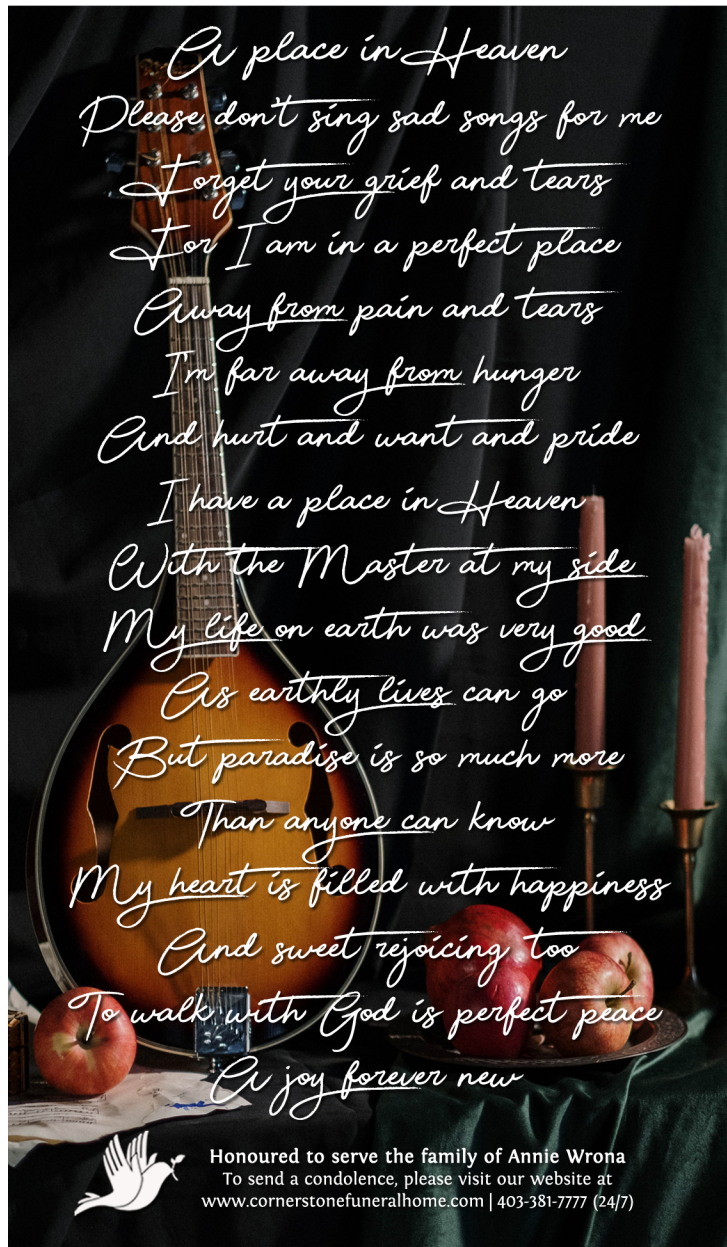 A place in Heaven
Please don't sing sad songs for me
Forget your grief and tears
For I am in a perfect place
Away from pain and tears
I'm far away from hunger
And hurt and want and pride
I have a place in Heaven
With the Master at my side
My life on earth was very good
As earthly lives can go
But paradise is so much more
Than anyone can know
My heart is filled with happiness
And sweet rejoicing too
To walk with God is perfect peace
A joy forever new
Honoured to serve the family of Annie Wrona
To send a condolence, please visit our website at
www.cornerstonefuneralhome.com | 403-381-7777 (24/7)